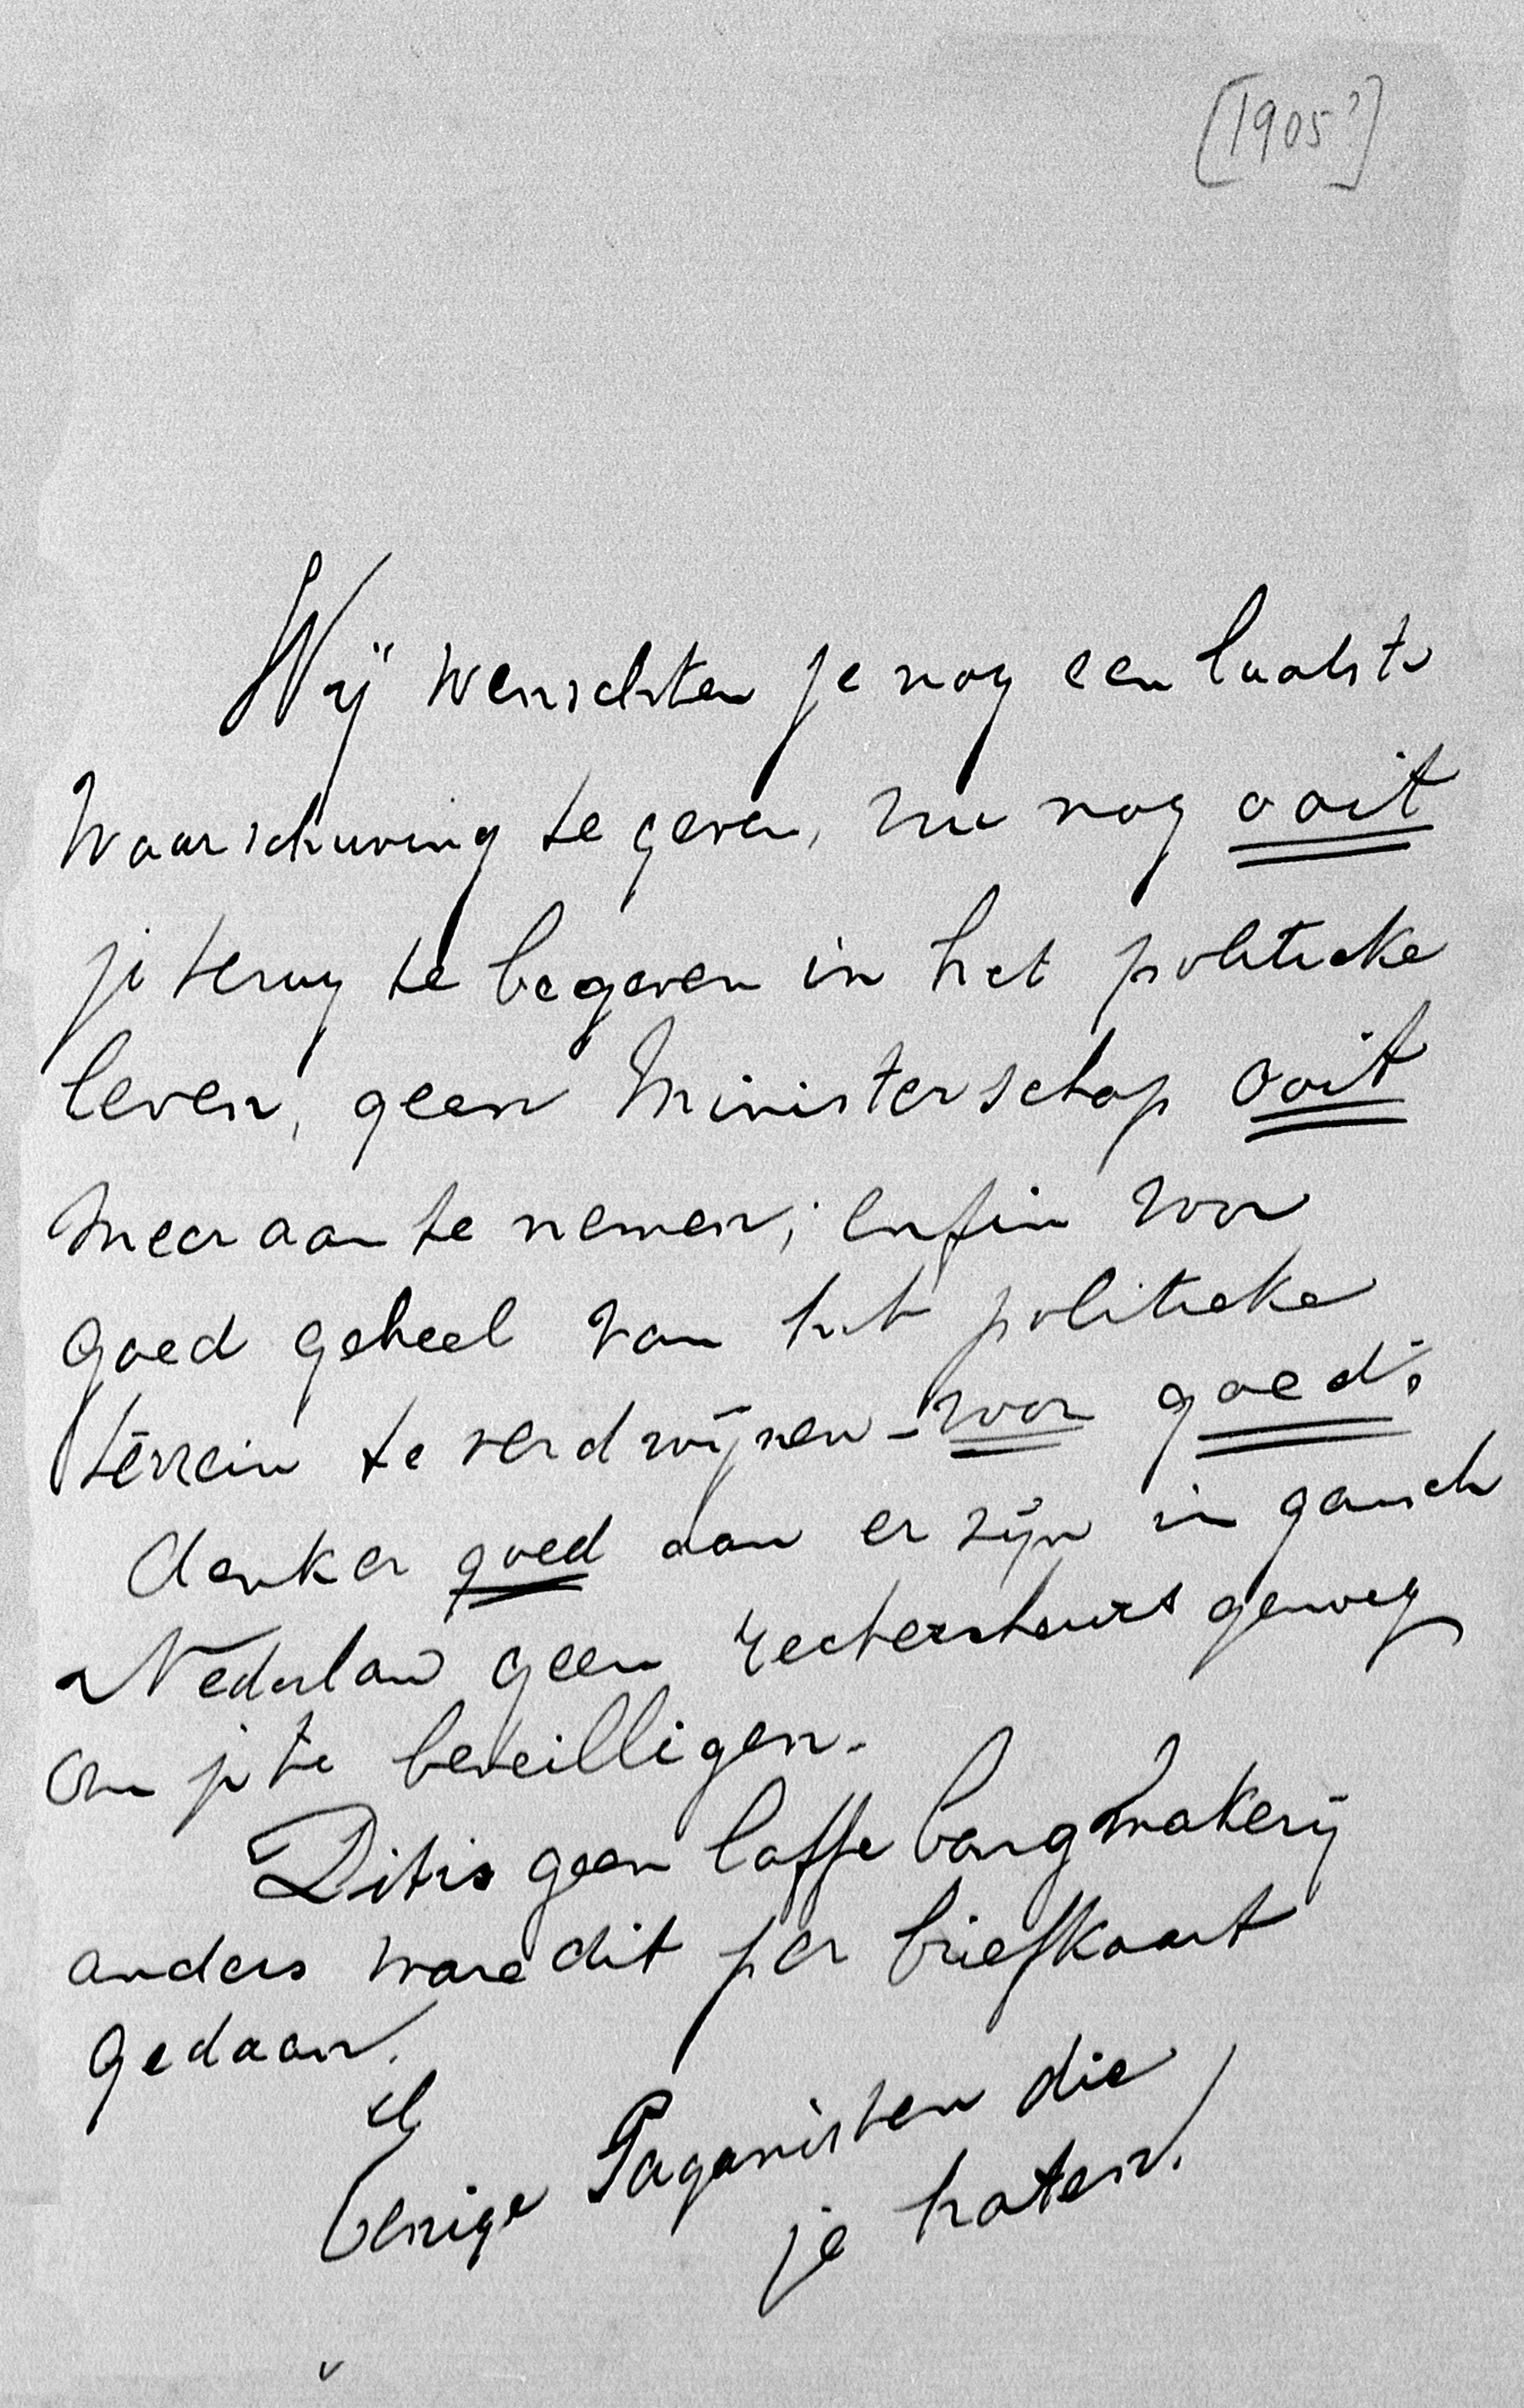 [1905?]
Wij wenschten je nog een laatste
waarschuwing te geven, nu nog ooit
je terug te begeven in het politieke
leven, geen Ministerschap ooit
meer aan te nemen; enfin voor
goed geheel van het politieke
terrein te verdwijnen - voor goed.
denk er goed aan er zijn in gansch
Nederlan geen rechercheurs genoeg
om je te beveilligen.
Dit is geen laffe bangmakerij
anders ware dit per briefkaart
gedaan.
Eenige Paganisten die
je haten!